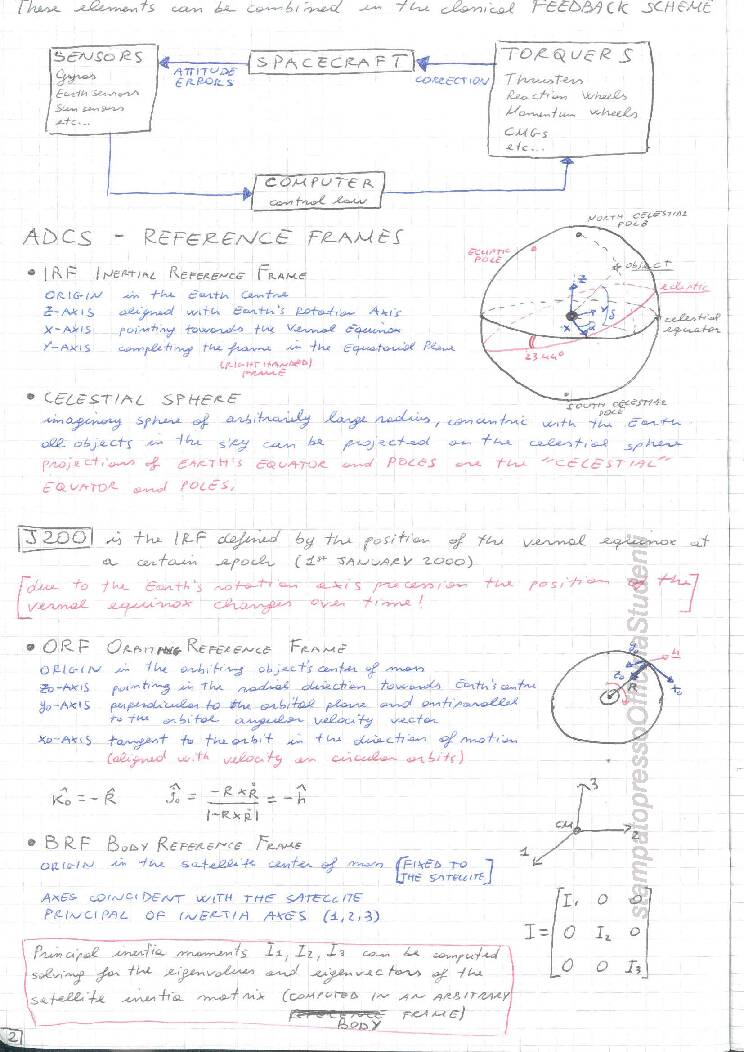 These elements can be combined in the classical FEEDBACK SCHEME
SENSORS
Gyros
Earth sensors
Sun sensors
etc...
ATTITUDE
ERRORS
SPACECRAFT
CORRECTION
TORQUERS
Thrusters
Reaction Wheels
Momentum wheels
CMGs
etc...
COMPUTER
control law
ADCS - REFERENCE FRAMES
• IRF INERTIAL REFERENCE FRAME
ORIGIN in the Earth Centre
Z-AXIS aligned with Earth's Rotation Axis
X-AXIS pointing towards the Vernal Equinox
Y-AXIS completing the frame in the Equatorial Plane
(RIGHT HANDED)
FRAME
NORTH CELESTIAL
POLE
ECLIPTIC
POLE
object
ecliptic
Z
Y
δ
X
α
celestial
equator
23.44°
SOUTH CELESTIAL
POLE
• CELESTIAL SPHERE
imaginary sphere of arbitrarily large radius, concentric with the Earth.
all objects in the sky can be projected on the celestial sphere
projections of EARTH'S EQUATOR and POLES are the "CELESTIAL"
EQUATOR and POLES.
J200 is the IRF defined by the position of the vernal equinox at
a certain epoch (1st JANUARY 2000)
[due to the Earth's rotation axis precession the position of the
vernal equinox changes over time!]
• ORF ORBITING REFERENCE FRAME
ORIGIN in the orbiting object's center of mass
z₀-AXIS pointing in the radial direction towards Earth's centre
y₀-AXIS perpendicular to the orbital plane and antiparallel
to the orbital angular velocity vector
x₀-AXIS tangent to the orbit in the direction of motion
(aligned with velocity in circular orbits)
y₀
h
z₀
R
x₀
K̂₀ = -R̂ ĵ₀ = (-R × Ṙ) / |-R × Ṙ| = -ĥ
• BRF BODY REFERENCE FRAME
ORIGIN in the satellite center of mass [FIXED TO
THE SATELLITE]
AXES COINCIDENT WITH THE SATELLITE
PRINCIPAL OF INERTIA AXES (1,2,3)
3
CM
2
1
I = [I₁ 0 0
0 I₂ 0
0 0 I₃]
Principal inertia moments I₁, I₂, I₃ can be computed
solving for the eigenvalues and eigenvectors of the
satellite inertia matrix (COMPUTED IN AN ARBITRARY
REFERENCE FRAME)
BODY
2
stampatopressoOfficinaStudenti